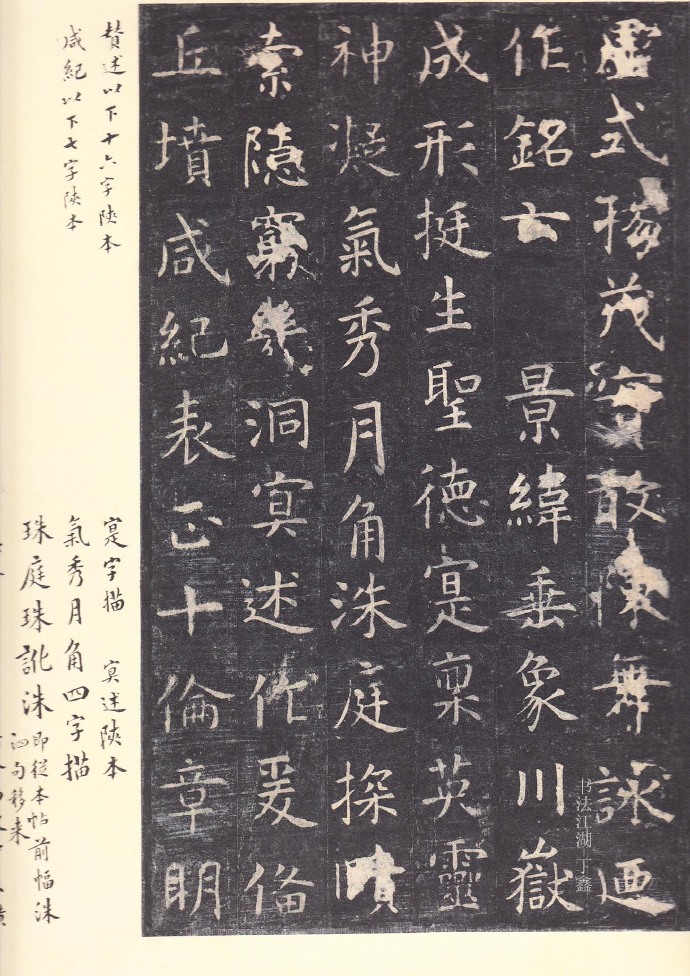 虛式揚茂實敢陳舞詠迺
作銘云 景緯垂象川嶽
成形挺生聖德寔稟英靈
神凝氣秀月角洙庭探賾
索隱窮幾洞冥述作爰俻
丘墳咸紀表正十倫章明
贊述以下十六字陝本
咸紀以下七字陝本
寔字描 冥述陝本
氣秀月角四字描
珠庭珠訛洙
即從本帖前幅洙
泗句移来
书法江湖 丁鑫